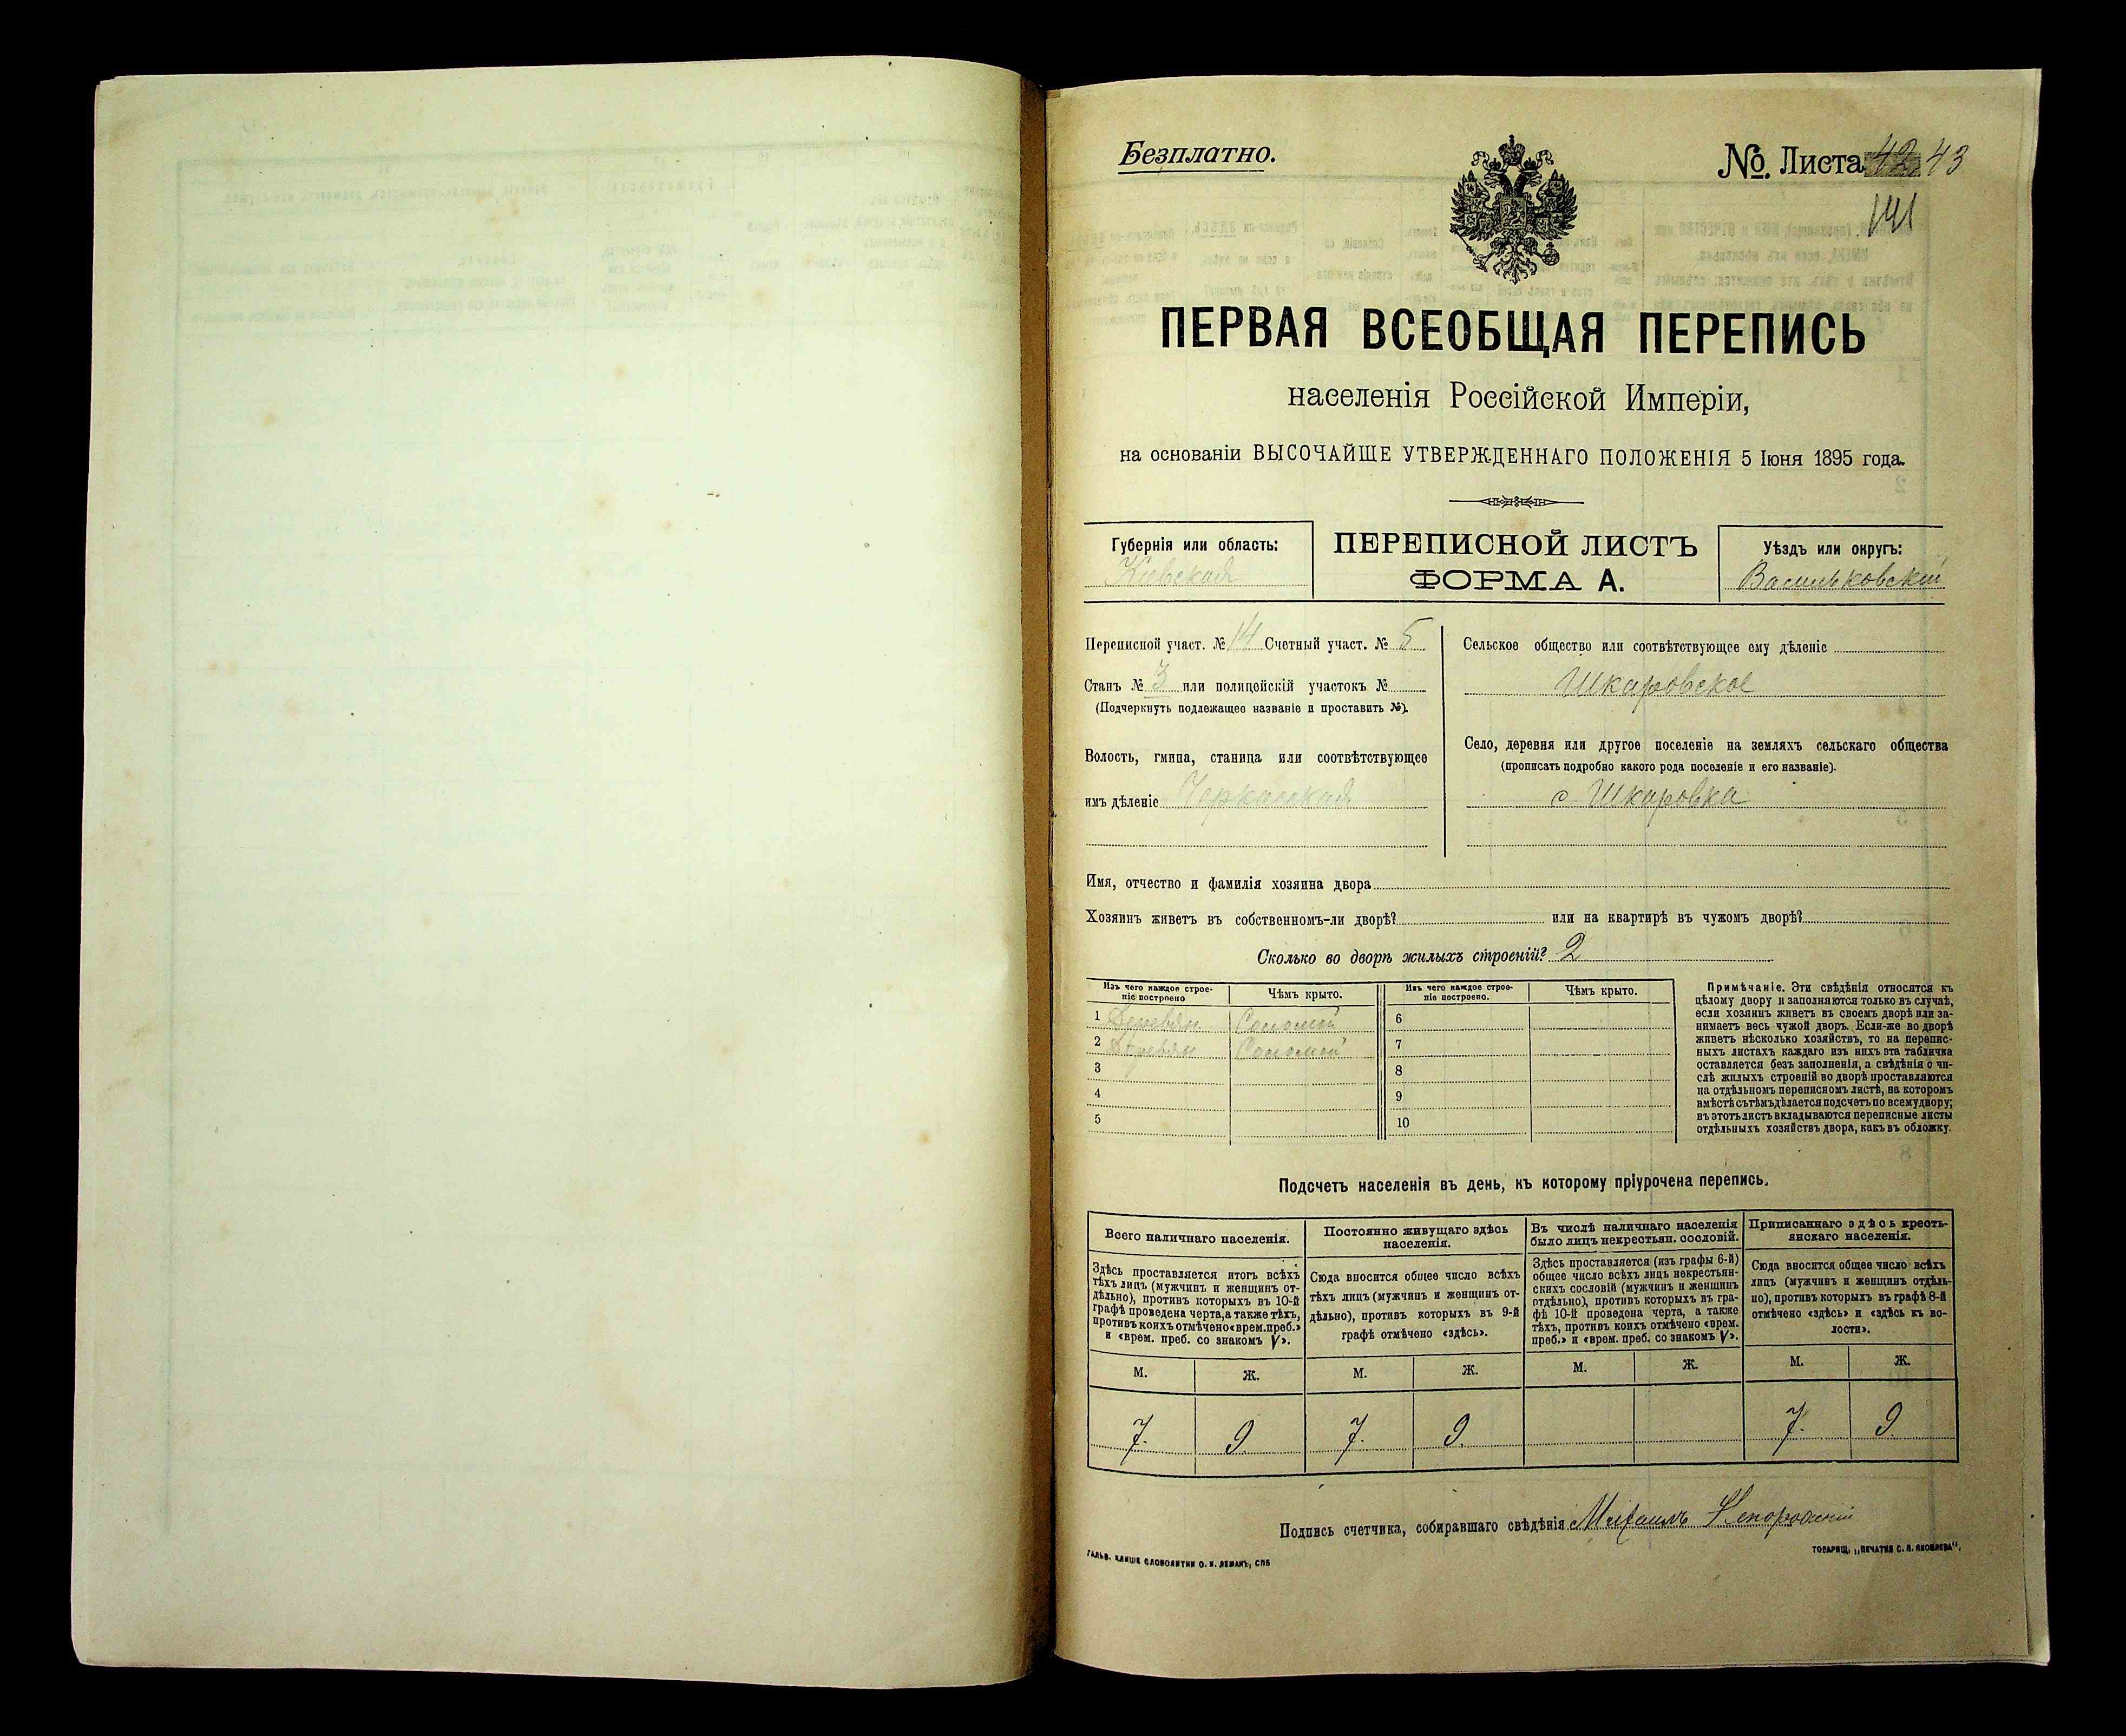 Безплатно.
№. Листа 43
141
ПЕРВАЯ ВСЕОБЩАЯ ПЕРЕПИСЬ
населенія Россійской Имперіи,
на основаніи ВЫСОЧАЙШЕ УТВЕРЖДЕННАГО ПОЛОЖЕНІЯ 5 Іюня 1895 года.
Губернія или область:
Кіевская
ПЕРЕПИСНОЙ ЛИСТЪ
ФОРМА А.
Уѣздъ или округъ:
Васильковскій
Переписной участ. № 14 Счетный участ. № 5
Станъ № 3 или полицейскій участокъ №
(Подчеркнуть подлежащее названіе и проставить №).
Волость, гмина, станица или соотвѣтствующее
имъ дѣленіе Черкасская
Сельское общество или соотвѣтствующее ему дѣленіе
Шкаровское
Село, деревня или другое поселеніе на земляхъ сельскаго общества
(прописать подробно какого рода поселеніе и его названіе).
с. Шкаровка
Имя, отчество и фамилія хозяина двора
Хозяинъ живетъ въ собственномъ-ли дворѣ? или на квартирѣ въ чужомъ дворѣ?
Сколько во дворѣ жилыхъ строеній? 2
Изъ чего каждое строе-
ніе построено
Чѣмъ крыто.
Изъ чего каждое строе-
ніе построено.
Чѣмъ крыто.
1 Деревян Соломой
2 Деревян Соломой
3
4
5
6
7
8
9
10
Примѣчаніе. Эти свѣдѣнія относятся къ
цѣлому двору и заполняются только въ случаѣ,
если хозяинъ живетъ въ своемъ дворѣ или за-
нимаетъ весь чужой дворъ. Если-же во дворѣ
живетъ нѣсколько хозяйствъ, то на перепис-
ныхъ листахъ каждаго изъ нихъ эта табличка
оставляется безъ заполненія, а свѣдѣнія о чи-
слѣ жилыхъ строеній во дворѣ проставляются
на отдѣльномъ переписномъ листѣ, на которомъ
вмѣстѣ съ тѣмъ дѣлается подсчетъ по всему двору;
въ этотъ листъ вкладываются переписные листы
отдѣльныхъ хозяйствъ двора, какъ въ обложку.
Подсчетъ населенія въ день, къ которому пріурочена перепись.
Всего наличнаго населенія.
Здѣсь проставляется итогъ всѣхъ
тѣхъ лицъ (мужчинъ и женщинъ от-
дѣльно), противъ которыхъ въ 10-й
графѣ проведена черта, а также тѣхъ,
противъ коихъ отмѣчено «врем. преб.»
и «врем. преб. со знакомъ V».
Постоянно живущаго здѣсь
населенія.
Сюда вносится общее число всѣхъ
тѣхъ лицъ (мужчинъ и женщинъ от-
дѣльно), противъ которыхъ въ 9-й
графѣ отмѣчено «здѣсь».
Въ числѣ наличнаго населенія
было лицъ некрестьян. сословій.
Здѣсь проставляется (изъ графы 6-й)
общее число всѣхъ лицъ некрестьян-
скихъ сословій (мужчинъ и женщинъ
отдѣльно), противъ которыхъ въ гра-
фѣ 10-й проведена черта, а также
тѣхъ, противъ коихъ отмѣчено «врем.
преб.» и «врем. преб. со знакомъ V».
Приписаннаго здѣсь кресть-
янскаго населенія.
Сюда вносится общее число всѣхъ
лицъ (мужчинъ и женщинъ отдѣль-
но), противъ которыхъ въ графѣ 8-й
отмѣчено «здѣсь» и «здѣсь къ во-
лости».
М. Ж. М. Ж. М. Ж. М. Ж.
7. 9. 7. 9. 7. 9.
Подпись счетчика, собиравшаго свѣдѣнія Михаилъ
ГАЛЬВ. КЛИШЕ СЛОВОЛИТНИ О. И. ЛЕМАНЪ, СПБ
ТОВАРИЩ. „ПЕЧАТНЯ С. П. ЯКОВЛЕВА“.